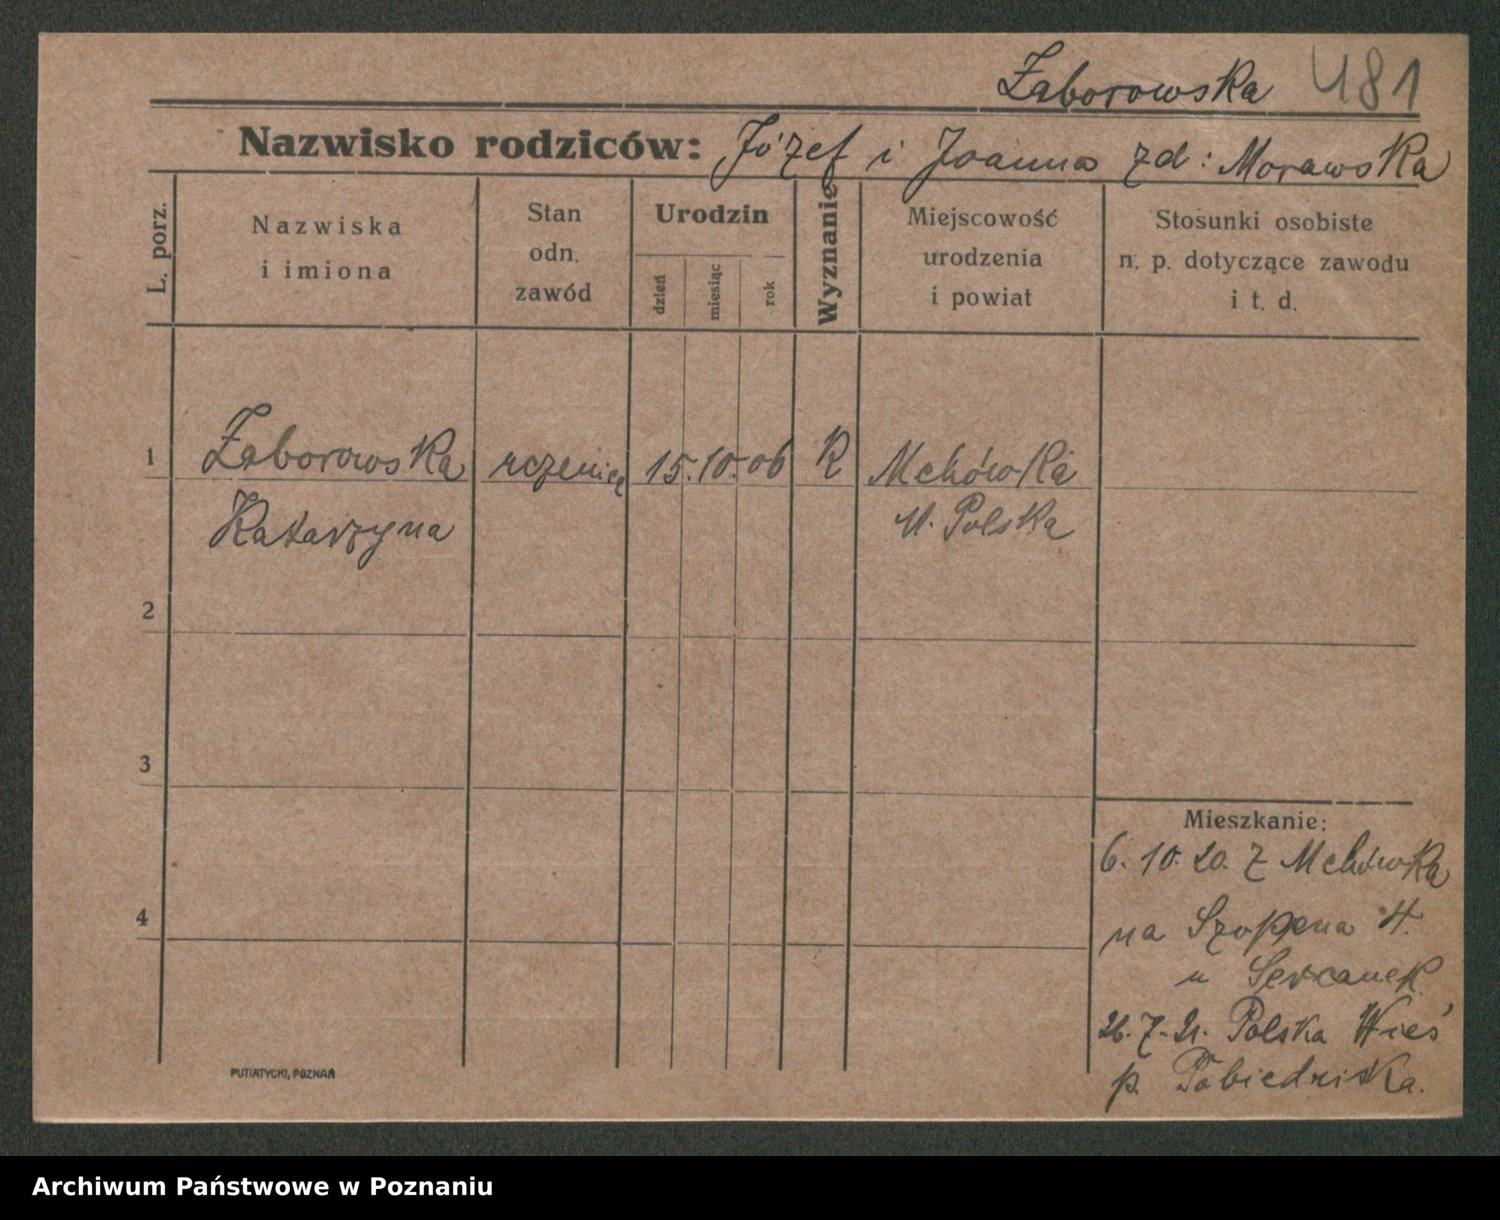 Zaborowska 481
Nazwisko rodziców: Józef i Joanna zd: Morawska
L. porz.
Nazwiska
i imiona
Stan
odn.
zawód
Urodzin
dzień
miesiąc
rok
Wyznanie
Miejscowość
urodzenia
i powiat
Stosunki osobiste
n. p. dotyczące zawodu
i t. d.
1 Zaborowska uczenica 15. 10. 06 K Mchówka
Katarzyna M. Polska
2
3
4
Mieszkanie:
6. 10. 20. Z Mchówka
na Szopena 4.
u
26. 7. 21. Polska Wieś
p. Pobiedziska.
PUTIATYCKI, POZNAŃ
Archiwum Państwowe w Poznaniu